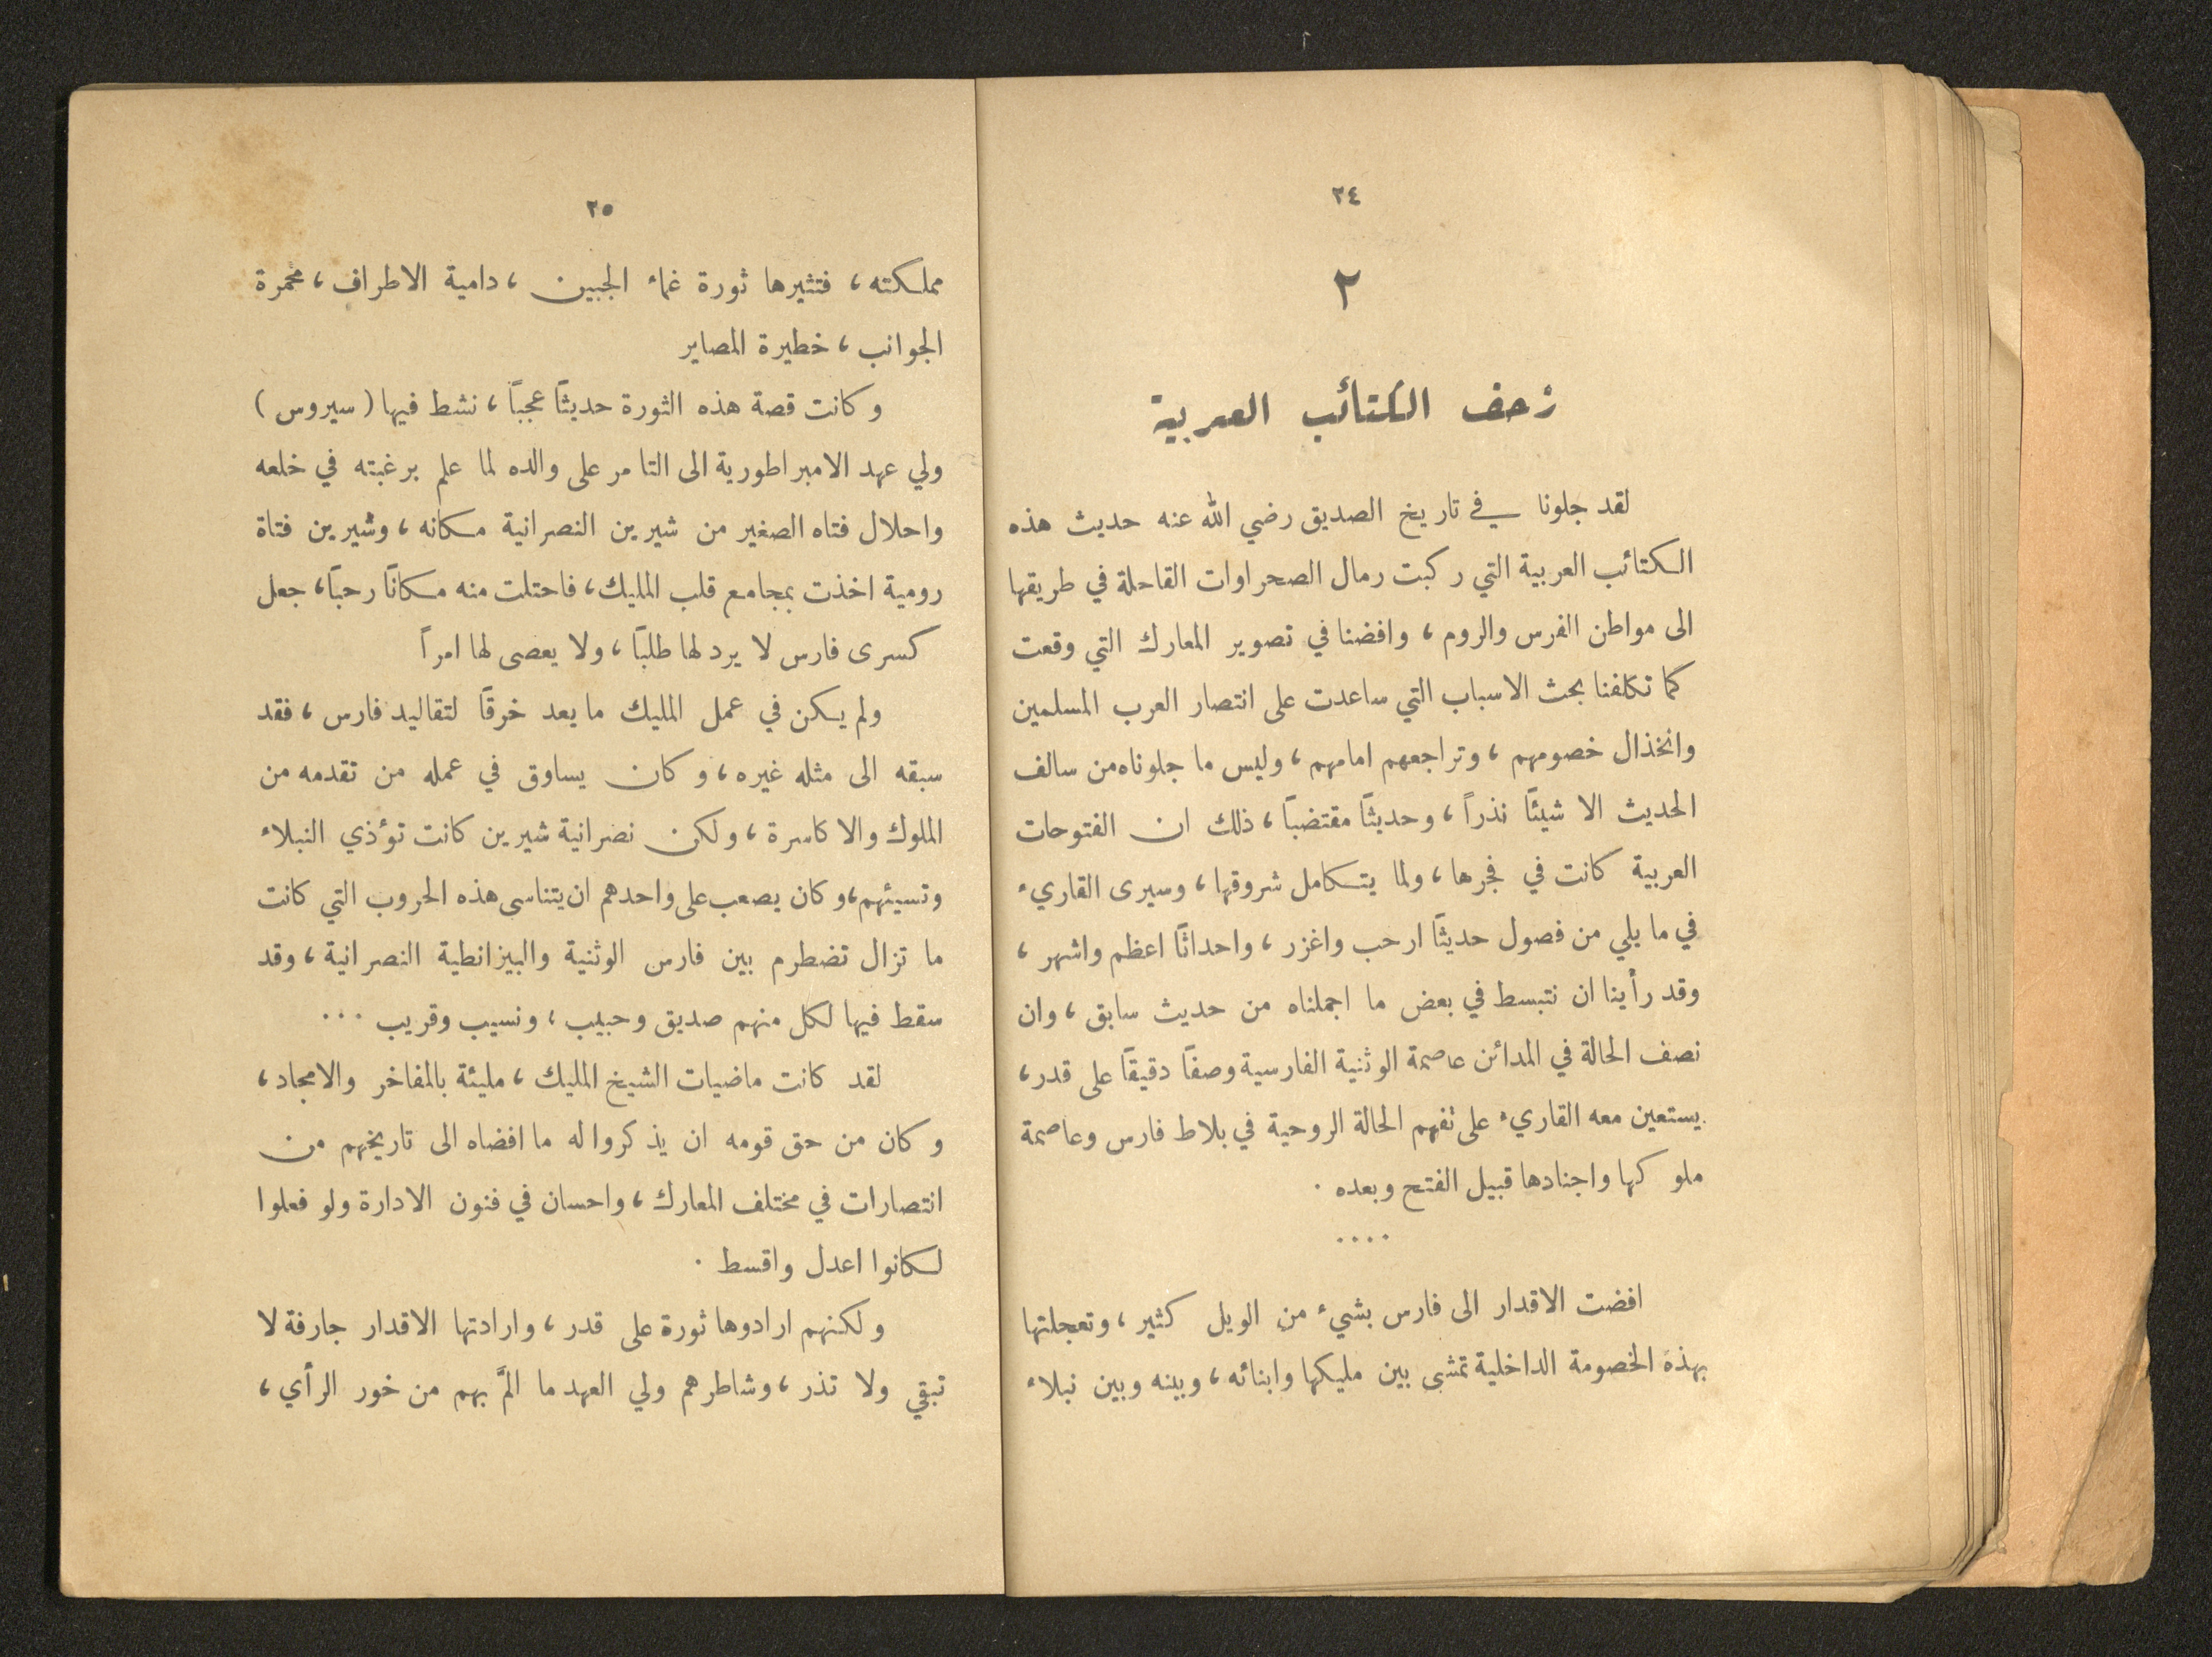 ٢٤
٢
زحف الكتائب العربية
لقد جلونا في تاريخ الصديق رضي الله عنه حديث هذه
الكتائب العربية التي ركبت رمال الصحراوات القاحلة في طريقها
الى مواطن الفرس والروم ، وافضنا في تصوير المعارك التي وقعت
كما تكلفنا بحث الاسباب التي ساعدت على انتصار العرب المسلمين
وانخذال خصومهم ، وتراجعهم امامهم ، وليس ما جلوناه من سالف
الحديث الا شيئاً نذراً ، وحديثاً مقتضباً ، ذلك ان الفتوحات
العربية كانت في فجرها ، ولما يتكامل شروقها ، وسيرى القاريء
في ما يلي من فصول حديثاً ارحب واغزر ، واحداثاً اعظم واشهر ،
وقد رأينا ان نتبسط في بعض ما اجملناه من حديث سابق ، وان
نصف الحالة في المدائن عاصمة الوثنية الفارسية وصفاً دقيقاً على قدر ،
يستعين معه القاريء على تفهم الحالة الروحية في بلاط فارس وعاصمة
ملوكها واجنادها قبيل الفتح وبعده .
....
افضت الاقدار الى فارس بشيء من الويل كثير ، وتعجلتها
بهذه الخصومة الداخلية تمشي بين مليكها وابنائه ، وبينه وبين نبلاء
٢٥
مملكته ، فتثيرها ثورة غماء الجبين ، دامية الاطراف ، محمرة
الجوانب ، خطيرة المصاير
وكانت قصة هذه الثورة حديثاً عجباً ، نشط فيها ( سيروس )
ولي عهد الامبراطورية الى التامر على والده لما علم برغبته في خلعه
واحلال فتاه الصغير من شيرين النصرانية مكانه ، وشيرين فتاة
رومية اخذت بمجامع قلب المليك ، فاحتلت منه مكاناً رحباً ، جعل
كسرى فارس لا يرد لها طلباً ، ولا يعصى لها امراً
ولم يكن في عمل المليك ما يعد خرقاً لتقاليد فارس ، فقد
سبقه الى مثله غيره ، وكان يساوق في عمله من تقدمه من
الملوك والاكاسرة ، ولكن نصرانية شيرين كانت تؤذي النبلاء
وتسيئهم ، وكان يصعب على واحدهم ان يتناسى هذه الحروب التي كانت
ما تزال تضطرم بين فارس الوثنية والبيزانطية النصرانية ، وقد
سقط فيها لكل منهم صديق وحبيب ، ونسيب وقريب ...
لقد كانت ماضيات الشيخ المليك ، مليئة بالمفاخر والامجاد ،
وكان من حق قومه ان يذكروا له ما افضاه الى تاريخهم من
انتصارات في مختلف المعارك ، واحسان في فنون الادارة ولو فعلوا
لكانوا اعدل واقسط .
ولكنهم ارادوها ثورة على قدر ، وارادتها الاقدار جارفة لا
تبقي ولا تذر ، وشاطرهم ولي العهد ما المَّ بهم من خور الرأي ،